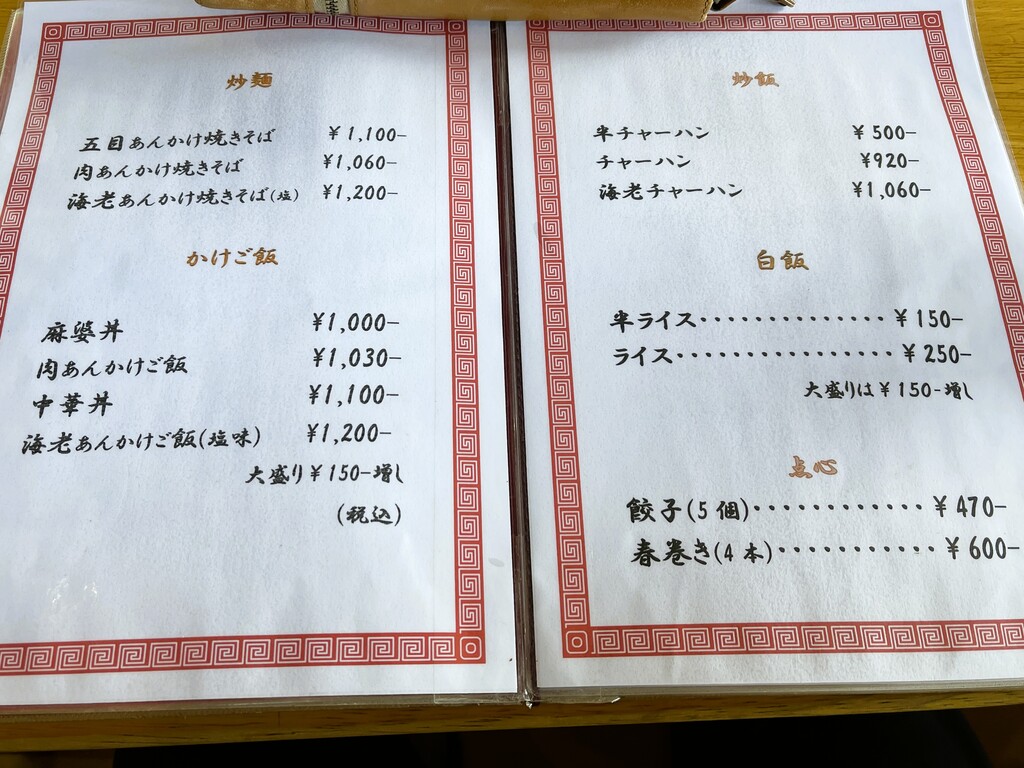 炒麺
五目あんかけ焼きそば ¥1,100-
肉あんかけ焼きそば ¥1,060-
海老あんかけ焼きそば(塩) ¥1,200-
かけご飯
麻婆丼 ¥1,000-
肉あんかけご飯 ¥1,030-
中華丼 ¥1,100-
海老あんかけご飯(塩味) ¥1,200-
大盛り¥150-増し
(税込)
炒飯
半チャーハン ¥500-
チャーハン ¥920-
海老チャーハン ¥1,060-
白飯
半ライス・・・・・・・・・・・・・・¥150-
ライス・・・・・・・・・・・・・・・・¥250-
大盛りは¥150-増し
点心
餃子(5個)・・・・・・・・・・・・¥470-
春巻き(4本)・・・・・・・・・・・¥600-